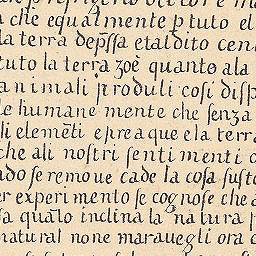 che equalmente ꝑ tuto el
la terra dep̄ssa et al dito cen
tuto la terra zoè quanto ala
animali produli cosi disp
le humane mente che senza
li elemēti e prea que la terra
che ali nostri sentimenti
do se remove cade la cosa susto
er experimento se cognose che
sa quālo inclina la natura
natural none maravegli ora